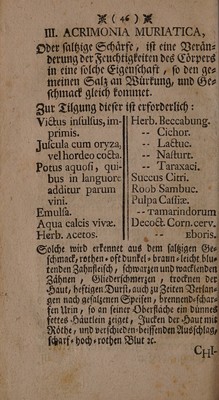 ( 46 )
III. ACRIMONIA MURIATICA,
Oder saltzige Schärfe, ist eine Verän-
derung der Feuchtigkeiten des Cörpers
in eine solche Eigenschaft, so den ge-
meinen Saltz an Würkung, und Ge-
schmack gleich kommet.
Zur Tilgung dieser ist erforderlich:
Victus insulsus, im-
primis.
Juscula cum oryza,
vel hordeo cocta.
Potus aquosi, qui-
bus in languore
additur parum
vini.
Emulsa.
Aqua calcis vivæ.
Herb. Acetos.
Herb. Beccabung.
-- Cichor.
-- Lactuc.
-- Nasturt.
-- Taraxaci.
Succus Citri.
Roob Sambuc.
Pulpa Cassiæ.
-- Tamarindorum
Decoct. Corn. cerv.
-- Eboris.
Solche wird erkennet aus dem saltzigen Ge-
schmack, rothen-oft dunkel-braun-leicht blu-
tenden Zahnfleisch, schwarzen und wacklenden
Zähnen, Gliederschmerzen, trocknen der
Haut, heftigen Durst, auch zu Zeiten Verlan-
gen nach gesaltzenen Speisen, brennend-schar-
fen Urin, so an seiner Oberfläche ein dünnes
fettes Häutlein zeiget, Jucken der Haut mit
Röthe, und verschieden-beissenden Ausschlag,
scharf-hoch-rothen Blut ꝛc.
CHI-